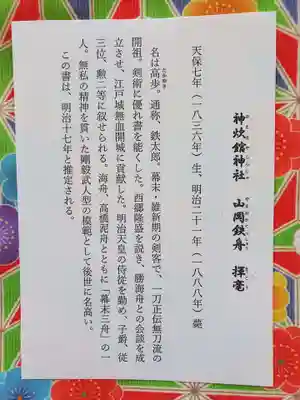 神炊館神社 山岡鉄舟 揮毫
天保七年（一八三六年）生、明治二十一年（一八八八年）薨
名は高歩。通称、鉄太郎。幕末・維新期の剣客で、一刀正伝無刀流の
開祖。剣術に優れ書を能くした。西郷隆盛を説き、勝海舟との会談を成
立させ、江戸城無血開城に貢献した。明治天皇の侍従を勤め、子爵、従
三位、勲二等に叙せられる。海舟、高橋泥舟とともに「幕末三舟」の一
人。無私の精神を貫いた剛毅武人型の模範として後世に名高い。
この書は、明治十七年と推定される。